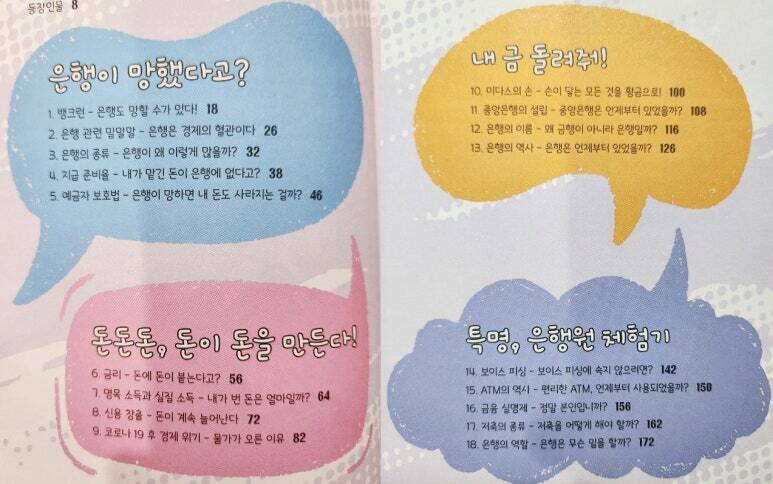 등장인물 8
은행이 망했다고?
1. 뱅크런 – 은행도 망할 수가 있다! 18
2. 은행 관련 말말말 – 은행은 경제의 혈관이다 26
3. 은행의 종류 – 은행이 왜 이렇게 많을까? 32
4. 지급 준비율 – 내가 맡긴 돈이 은행에 없다고? 38
5. 예금자 보호법 – 은행이 망하면 내 돈도 사라지는 걸까? 46
돈돈돈, 돈이 돈을 만든다!
6. 금리 – 돈에 돈이 붙는다고? 56
7. 명목 소득과 실질 소득 – 내가 번 돈은 얼마일까? 64
8. 신용 창출 – 돈이 계속 늘어난다 72
9. 코로나 19 후 경제 위기 – 물가가 오른 이유 82
내 금 돌려줘!
10. 미다스의 손 – 손이 닿는 모든 것을 황금으로! 100
11. 중앙은행의 설립 – 중앙은행은 언제부터 있었을까? 108
12. 은행의 이름 – 왜 금행이 아니라 은행일까? 116
13. 은행의 역사 – 은행은 언제부터 있었을까? 126
특명, 은행원 체험기
14. 보이스 피싱 – 보이스 피싱에 속지 않으려면? 142
15. ATM의 역사 – 편리한 ATM, 언제부터 사용되었을까? 150
16. 금융 실명제 – 정말 본인입니까? 156
17. 저축의 종류 – 저축을 어떻게 해야 할까? 162
18. 은행의 역할 – 은행은 무슨 일을 할까? 172